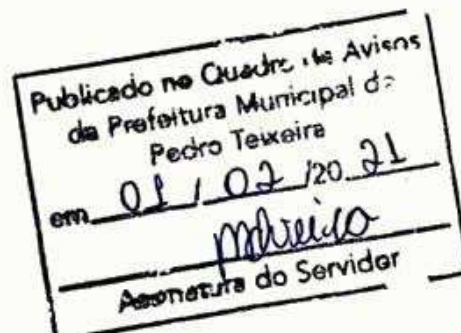 Publicado no Quadro de Avisos
da Prefeitura Municipal de
Pedro Teixeira
em 01 / 02 /20 21
Assinatura do Servidor